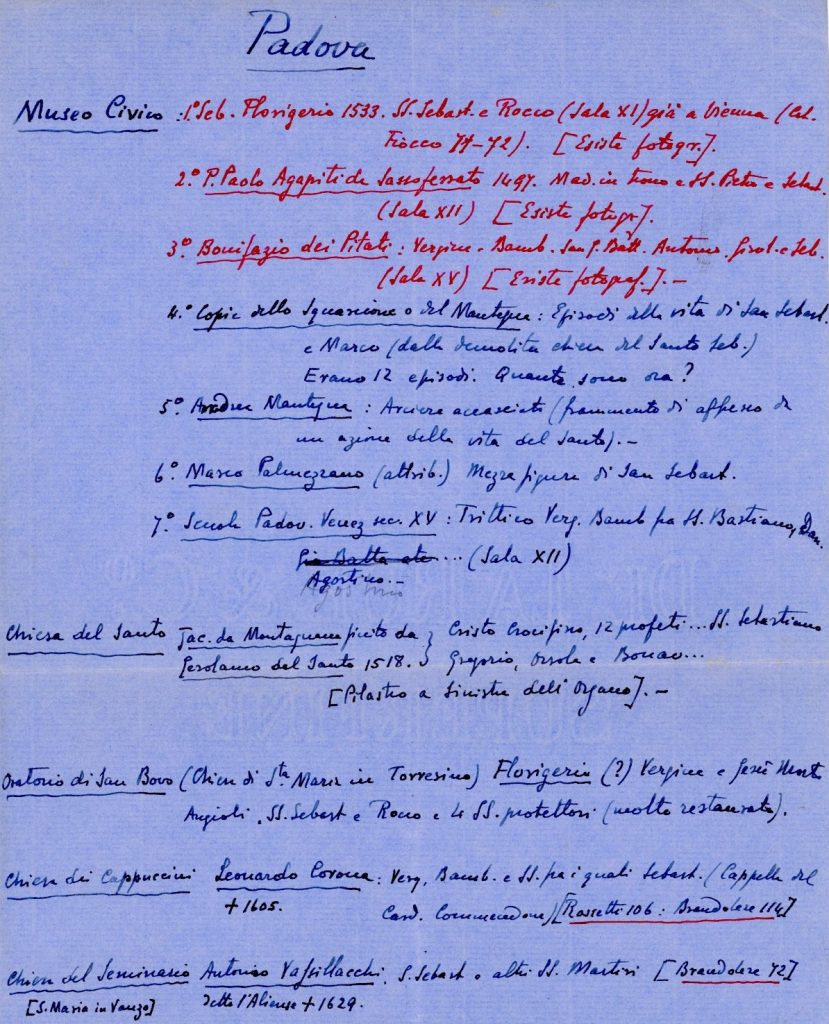 Padova
Museo Civico : 1.° Seb. Florigerio 1533. SS. Sebast. e Rocco (Sala XI) già a Vienna (Cat.
Fiocco 71-72). [Esiste fotogr.].
2.° P. Paolo Agapiti da Sassoferrato 1497. Mad. in trono e SS. Pietro e Sebast.
(Sala XII) [Esiste fotogr.].
3.° Bonifazio dei Pitati : Vergine. Bamb. San G. Batt. Antonio. Girol. e Seb.
(Sala XV) [Esiste fotograf.]. -
4.° Copie dello Squarcione o del Mantegna : Episodi della vita di San Sebast.
e Marco (dalla demolita chiesa del Santo Seb.)
Erano 12 episodi. Quante sono ora ?
5.° Andrea Mantegna : Arciere accasciato (frammento di affresco da
un azione della vita del Santo). -
6.° Marco Palmezzano (attrib.) Mezza figura di San Sebast.
7.° Scuola Padov. Venez sec. XV : Trittico Verg. Bamb fra SS. Bastiano, Dan.
Gio Batta ... (Sala XII)
Agostino. -
Agostino
Chiesa del Santo Jac. da Montagnana finito da } Cristo Crocifisso, 12 profeti ... SS. Sebastiano
Gerolamo del Santo 1518. Gregorio, Orsola e Bonav...
[Pilastro a sinistra dell' Organo]. -
Oratorio di San Bovo (Chiesa di Sta Maria in Torresino) Florigerio (?) Vergine e Gesù Morto
Angioli. SS. Sebast e Rocco e 4 SS. protettori (molto restaurata).
Chiesa dei Cappuccini Leonardo Corona : Verg. Bamb. e SS. fra i quali Sebast. (Cappella del
+ 1605. Card. Commendone) [Rossetti 106 : Brandolese 114]
Chiesa del Seminario Antonio Vassillacchi. S. Sebast e altri SS. Martiri [Brandolese 72]
[S. Maria in Vanzo] detto l'Aliense + 1629.